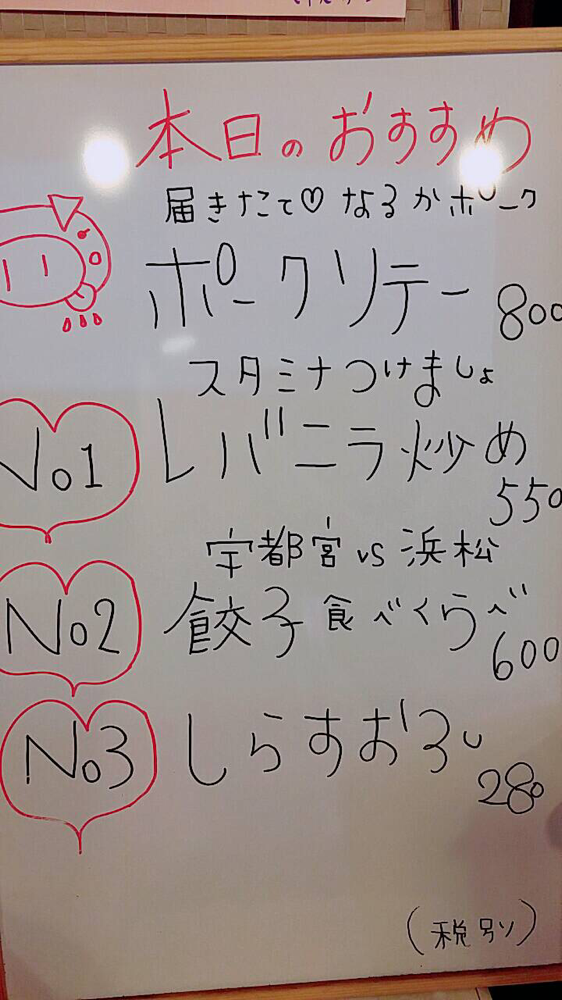 本日のおすすめ
届きたて♡なるかポーク
ポークソテー 800
スタミナつけましょ
No1 レバニラ炒め 550
宇都宮 vs 浜松
No2 餃子食べくらべ 600
No3 しらすおろし 280
(税別)